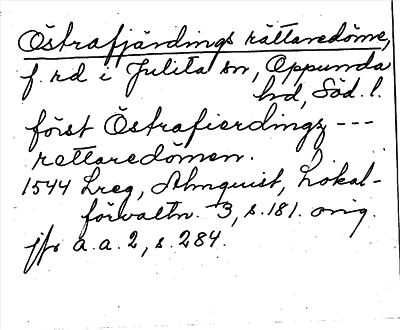 Östrafjärdings rättaredöme,
f. rd i Julita sn, Oppunda
hd, Söd. l.
först Östrafierdingz ---
rettaredömen.
1544 Lreg, Almquist, Lokal-
förvaltn. 3, s. 181. orig.
jfr a.a. 2, s. 284.